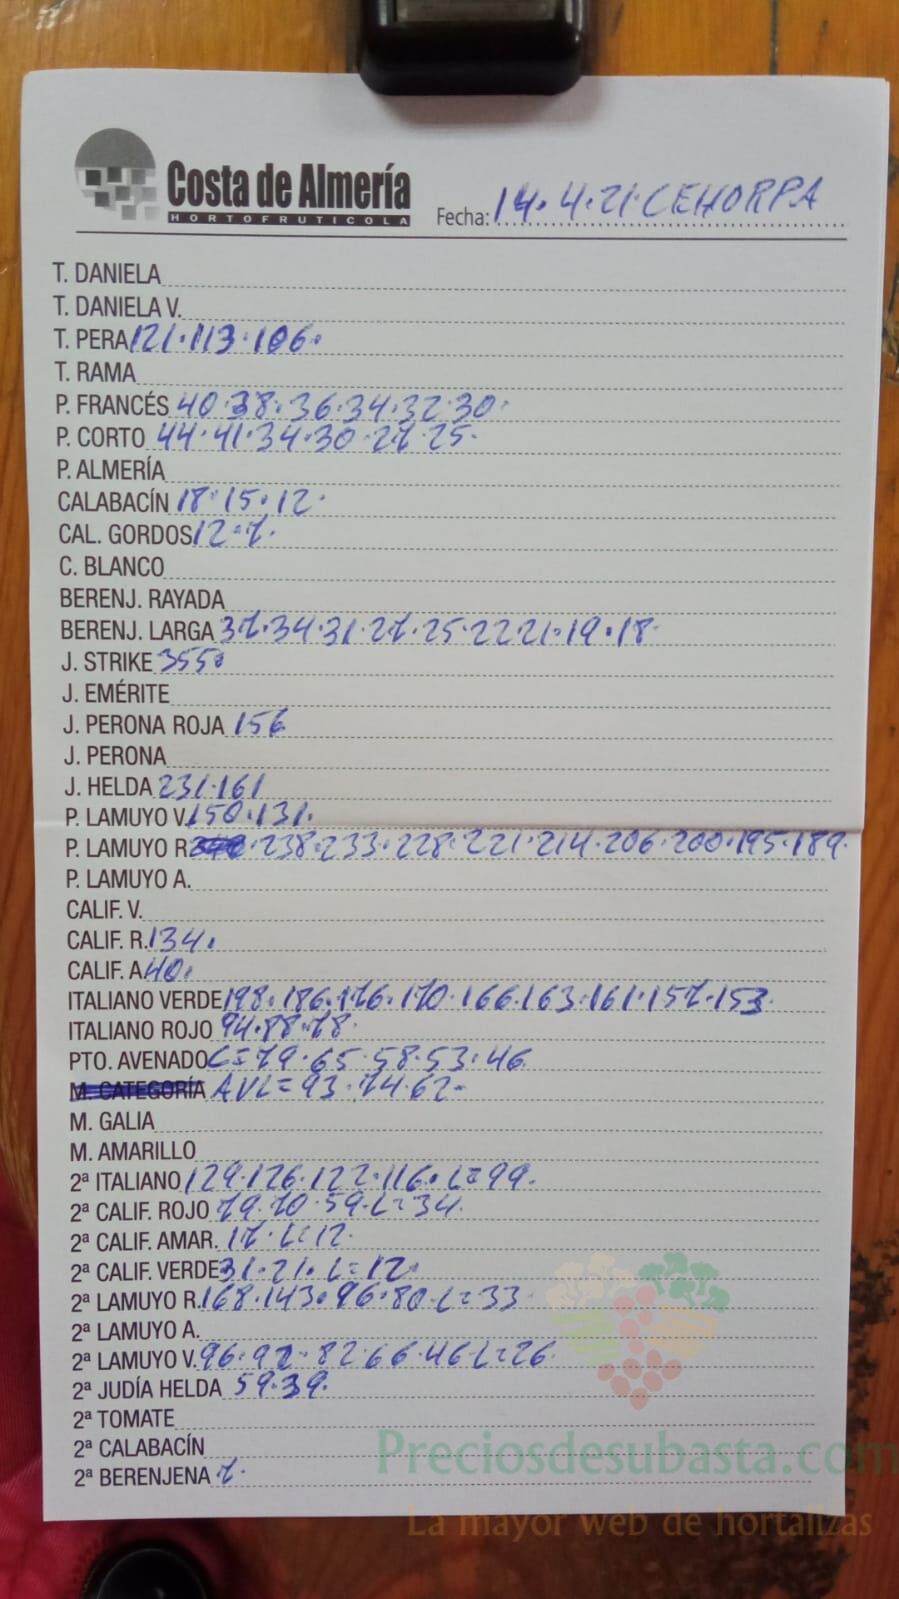 Costa de Almería
HORTOFRUTICOLA
Fecha: 14.4.21 CEHORPA
T. DANIELA
T. DANIELA V.
T. PERA 121.113.106.
T. RAMA
P. FRANCÉS 40.38.36.34.32.30.
P. CORTO 44.41.34.30.27.25.
P. ALMERÍA
CALABACÍN 18.15.12.
CAL. GORDOS 12=7.
C. BLANCO
BERENJ. RAYADA
BERENJ. LARGA 37.34.31.27.25.22.21.19.18.
J. STRIKE 355.
J. EMÉRITE
J. PERONA ROJA 156
J. PERONA
J. HELDA 231.161
P. LAMUYO V. 150.131.
P. LAMUYO R. 238.233.228.221.214.206.200.195.189.
P. LAMUYO A.
CALIF. V.
CALIF. R. 134.
CALIF. A 40.
ITALIANO VERDE 198.186.176.170.166.163.161.157.153
ITALIANO ROJO 94.88.78.
PTO. AVENADO C=79.65.58.53.46
M. CATEGORÍA AVL=93.74.62-
M. GALIA
M. AMARILLO
2ª ITALIANO 129.126.122.116.L=99.
2ª CALIF. ROJO 79.70.59.L=34.
2ª CALIF. AMAR. 17.L=12.
2ª CALIF. VERDE 31.21.L=12.
2ª LAMUYO R. 168.143.96.80.L=33
2ª LAMUYO A.
2ª LAMUYO V. 96.92.82.66.46.L=26.
2ª JUDÍA HELDA 59.39.
2ª TOMATE
2ª CALABACÍN
2ª BERENJENA 7.
Preciosdesubasta.com
La mayor web de hortalizas